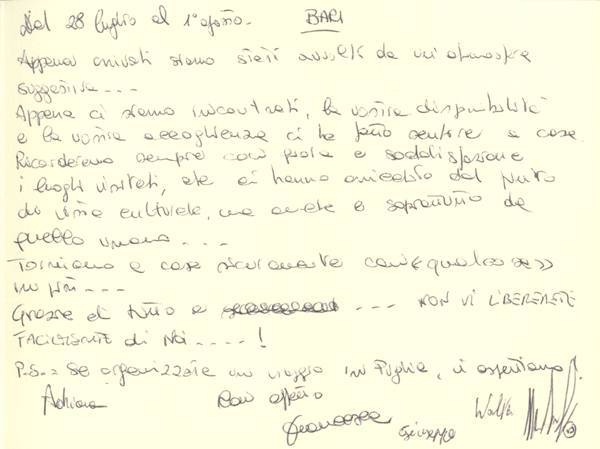 Dal 28 luglio al 1° agosto. BARI
Appena arrivati siamo stati avvolti da un'atmosfera
suggestiva...
Appena ci siamo incontrati, la vostra disponibilità
e la vostra accoglienza ci ha fatto sentire a casa
Ricorderemo sempre con gioia e soddisfazione
i luoghi visitati, che ci hanno arricchito dal punto
di vista culturale, ma anche e soprattutto da
quello umano....
Torniamo a casa sicuramente con «qualcosa»
in più...
Grazie di tutto e ... NON VI LIBERERETE
FACILMENTE di Noi....!
P.S.: Se organizzate un viaggio in Puglia, vi aspettiamo!
Adriana Con affetto
Francesca Giuseppe Walter